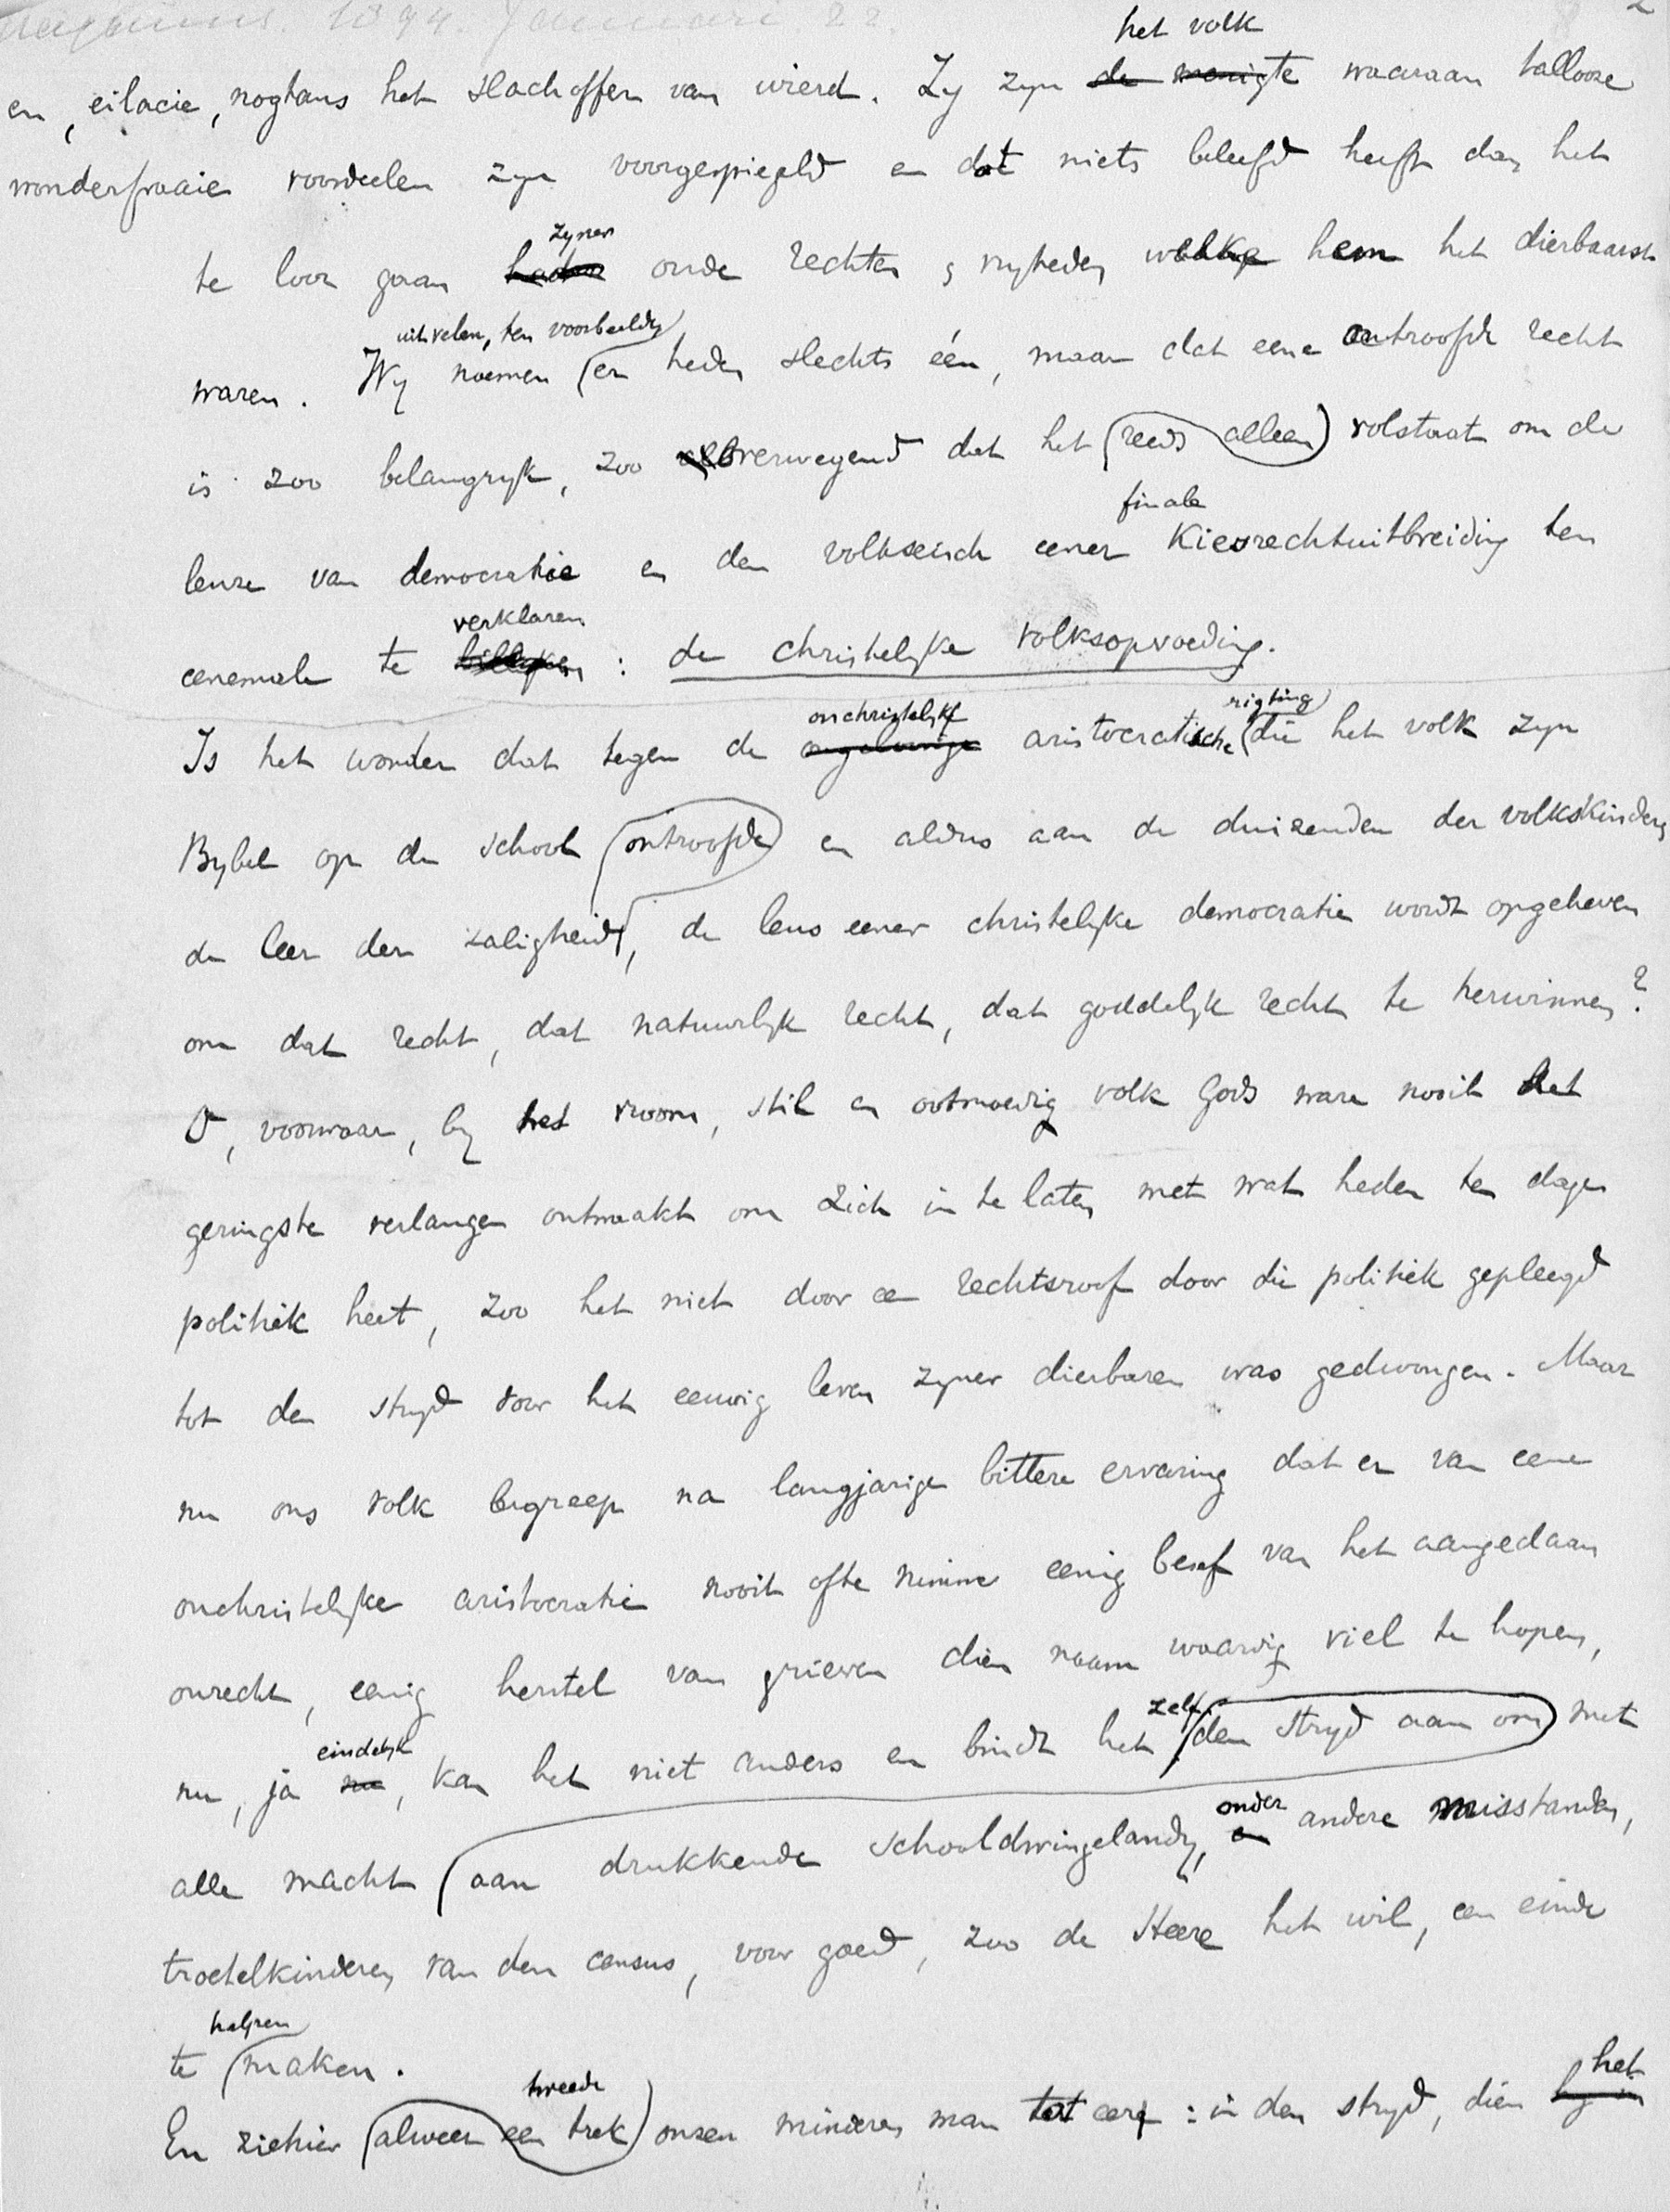 1894. Januari 22. 2
het volk
en, eilacie, nogtans het slachoffer van wierd. Zy zyn de menigte waaraan tallooze
wonderfraaie voordeelen zyn voorgespiegeld en dat niets beleefd heeft dan het
zyner
te loor gaan oude rechten & vryheden welke hem het dierbaarst
uit velen, ten voorbeelde
waren. Wy noemen er heden slechts één, maar dat eene ontroofde recht
is zoo belangryk, zoo alloverwegend dat het reeds alleen volstaat om de
finale
leuze van democratie en den volkseisch eener Kiesrechtuitbreiding ten
verklaren
eenemale te billyken : de christelyke volksopvoeding.
onchristelyke rigting
Is het wonder dat tegen de ongeloovige aristocratische die het volk zyn
Bybel op de school ontroofde en aldus aan de duizenden der volkskinderen
de leer der zaligheid, de leus eener christelyke democratie wordt opgeheven
om dat recht, dat natuurlyk recht, dat goddelyk recht te herwinnen?
O, voorwaar, by het vroom, stil en ootmoedig volk Gods ware nooit het
geringste verlangen ontwaakt om zich in te laten met wat heden ten dage
politiek heet, zoo het niet door een rechtsroof door die politiek gepleegd
tot den stryd voor het eeuwig leven zyner dierbaren was gedwongen. Maar
nu ons volk begreep na langjarige bittere ervaring dat er van eene
onchristelyke aristocratie nooit ofte nimmer eenig besef van het aangedaan
onrecht, eenig herstel van grieven dien naam waardig viel te hopen,
eindelyk zelf
nu, ja nu, kan het niet anders en bindt het den stryd aan om met
onder
alle macht aan drukkende schooldwingelandy, en andere misstanden,
troetelkinderen van den census, voor goed, zoo de Heere het wil, een einde
helpen
te maken.
tweede het
En ziehier alweer een trek onzen minderen man tot eere : in den stryd, dien hy in